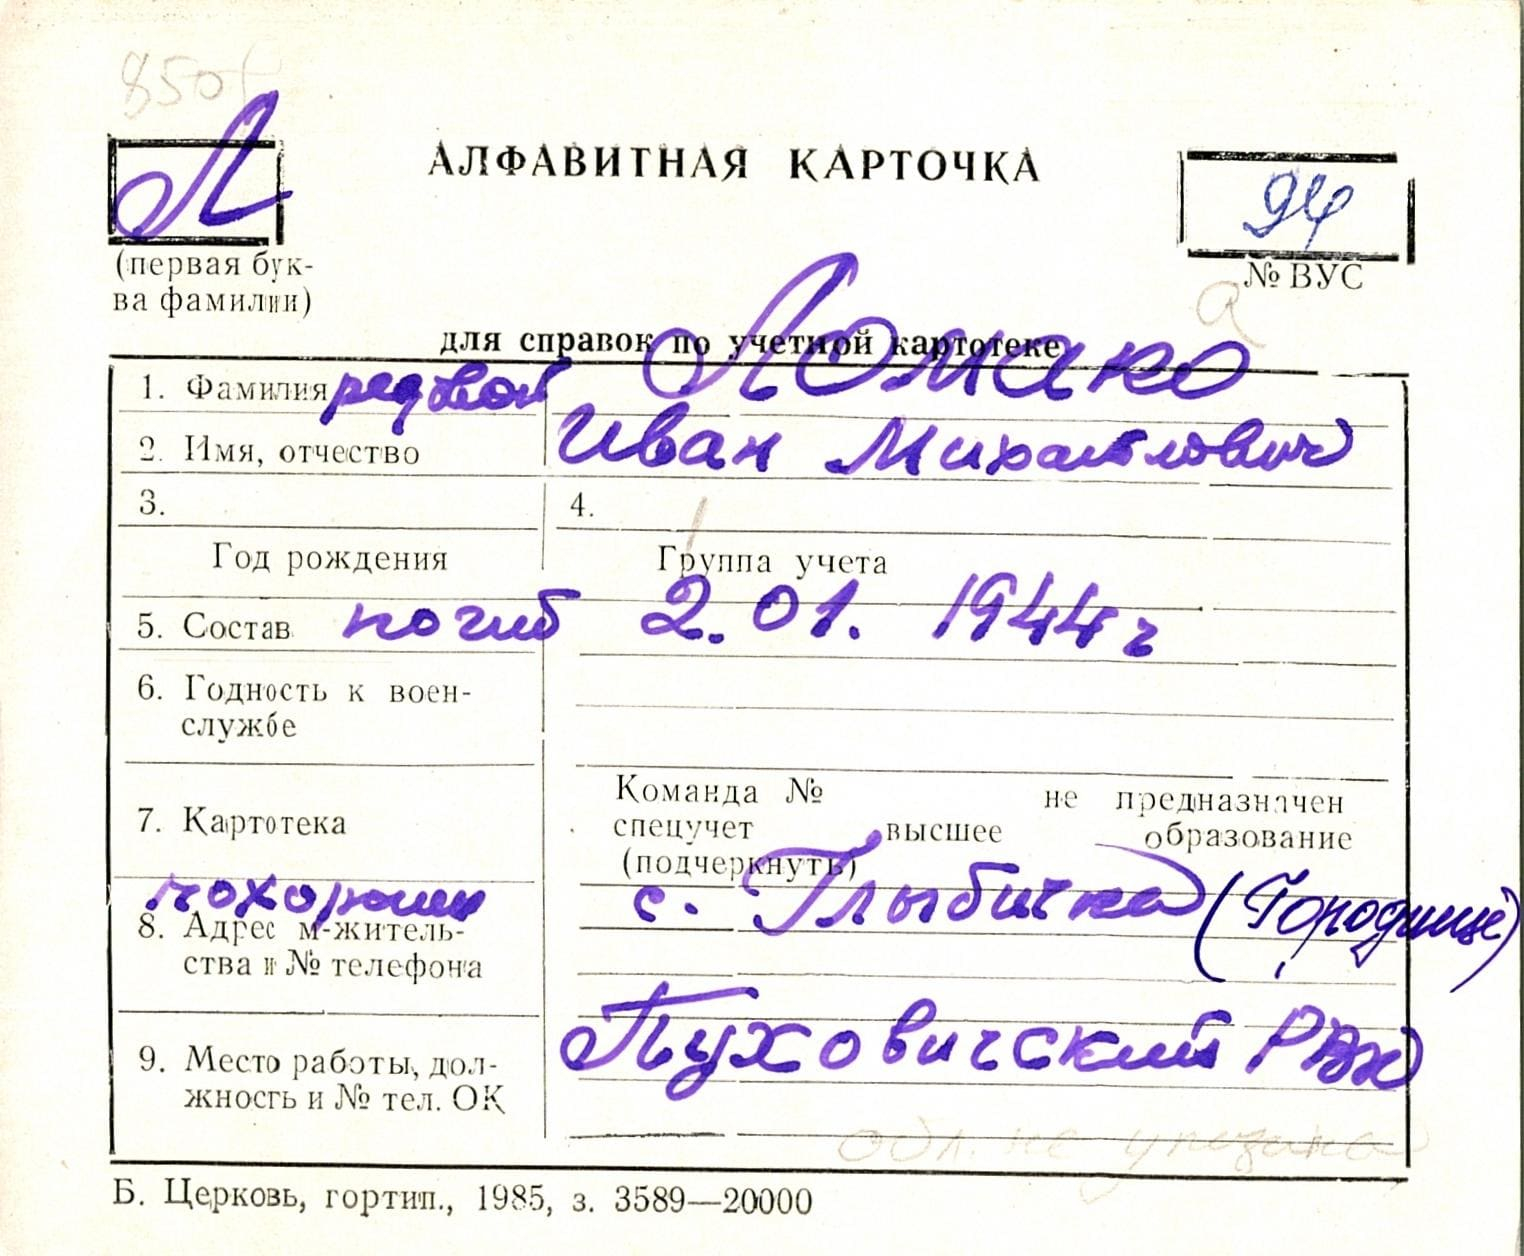 Л
АЛФАВИТНАЯ КАРТОЧКА
94
(первая бук-
ва фамилии)
№ ВУС
для справок по учетной картотеке
1. Фамилия рядовой Ломако
2. Имя, отчество Иван Михайлович
3. 4.
Год рождения Группа учета
5. Состав погиб 2.01.1944 г
6. Годность к воен-
службе
7. Картотека
Команда № не предназначен
спецучет высшее образование
(подчеркнуть)
похоронен с. Глыбичка (Городище)
8. Адрес м-житель-
ства и № телефона
Пуховичский РВК
9. Место работы, дол-
жность и № тел. ОК
обл. не указана
Б. Церковь, гортип., 1985, з. 3589—20000